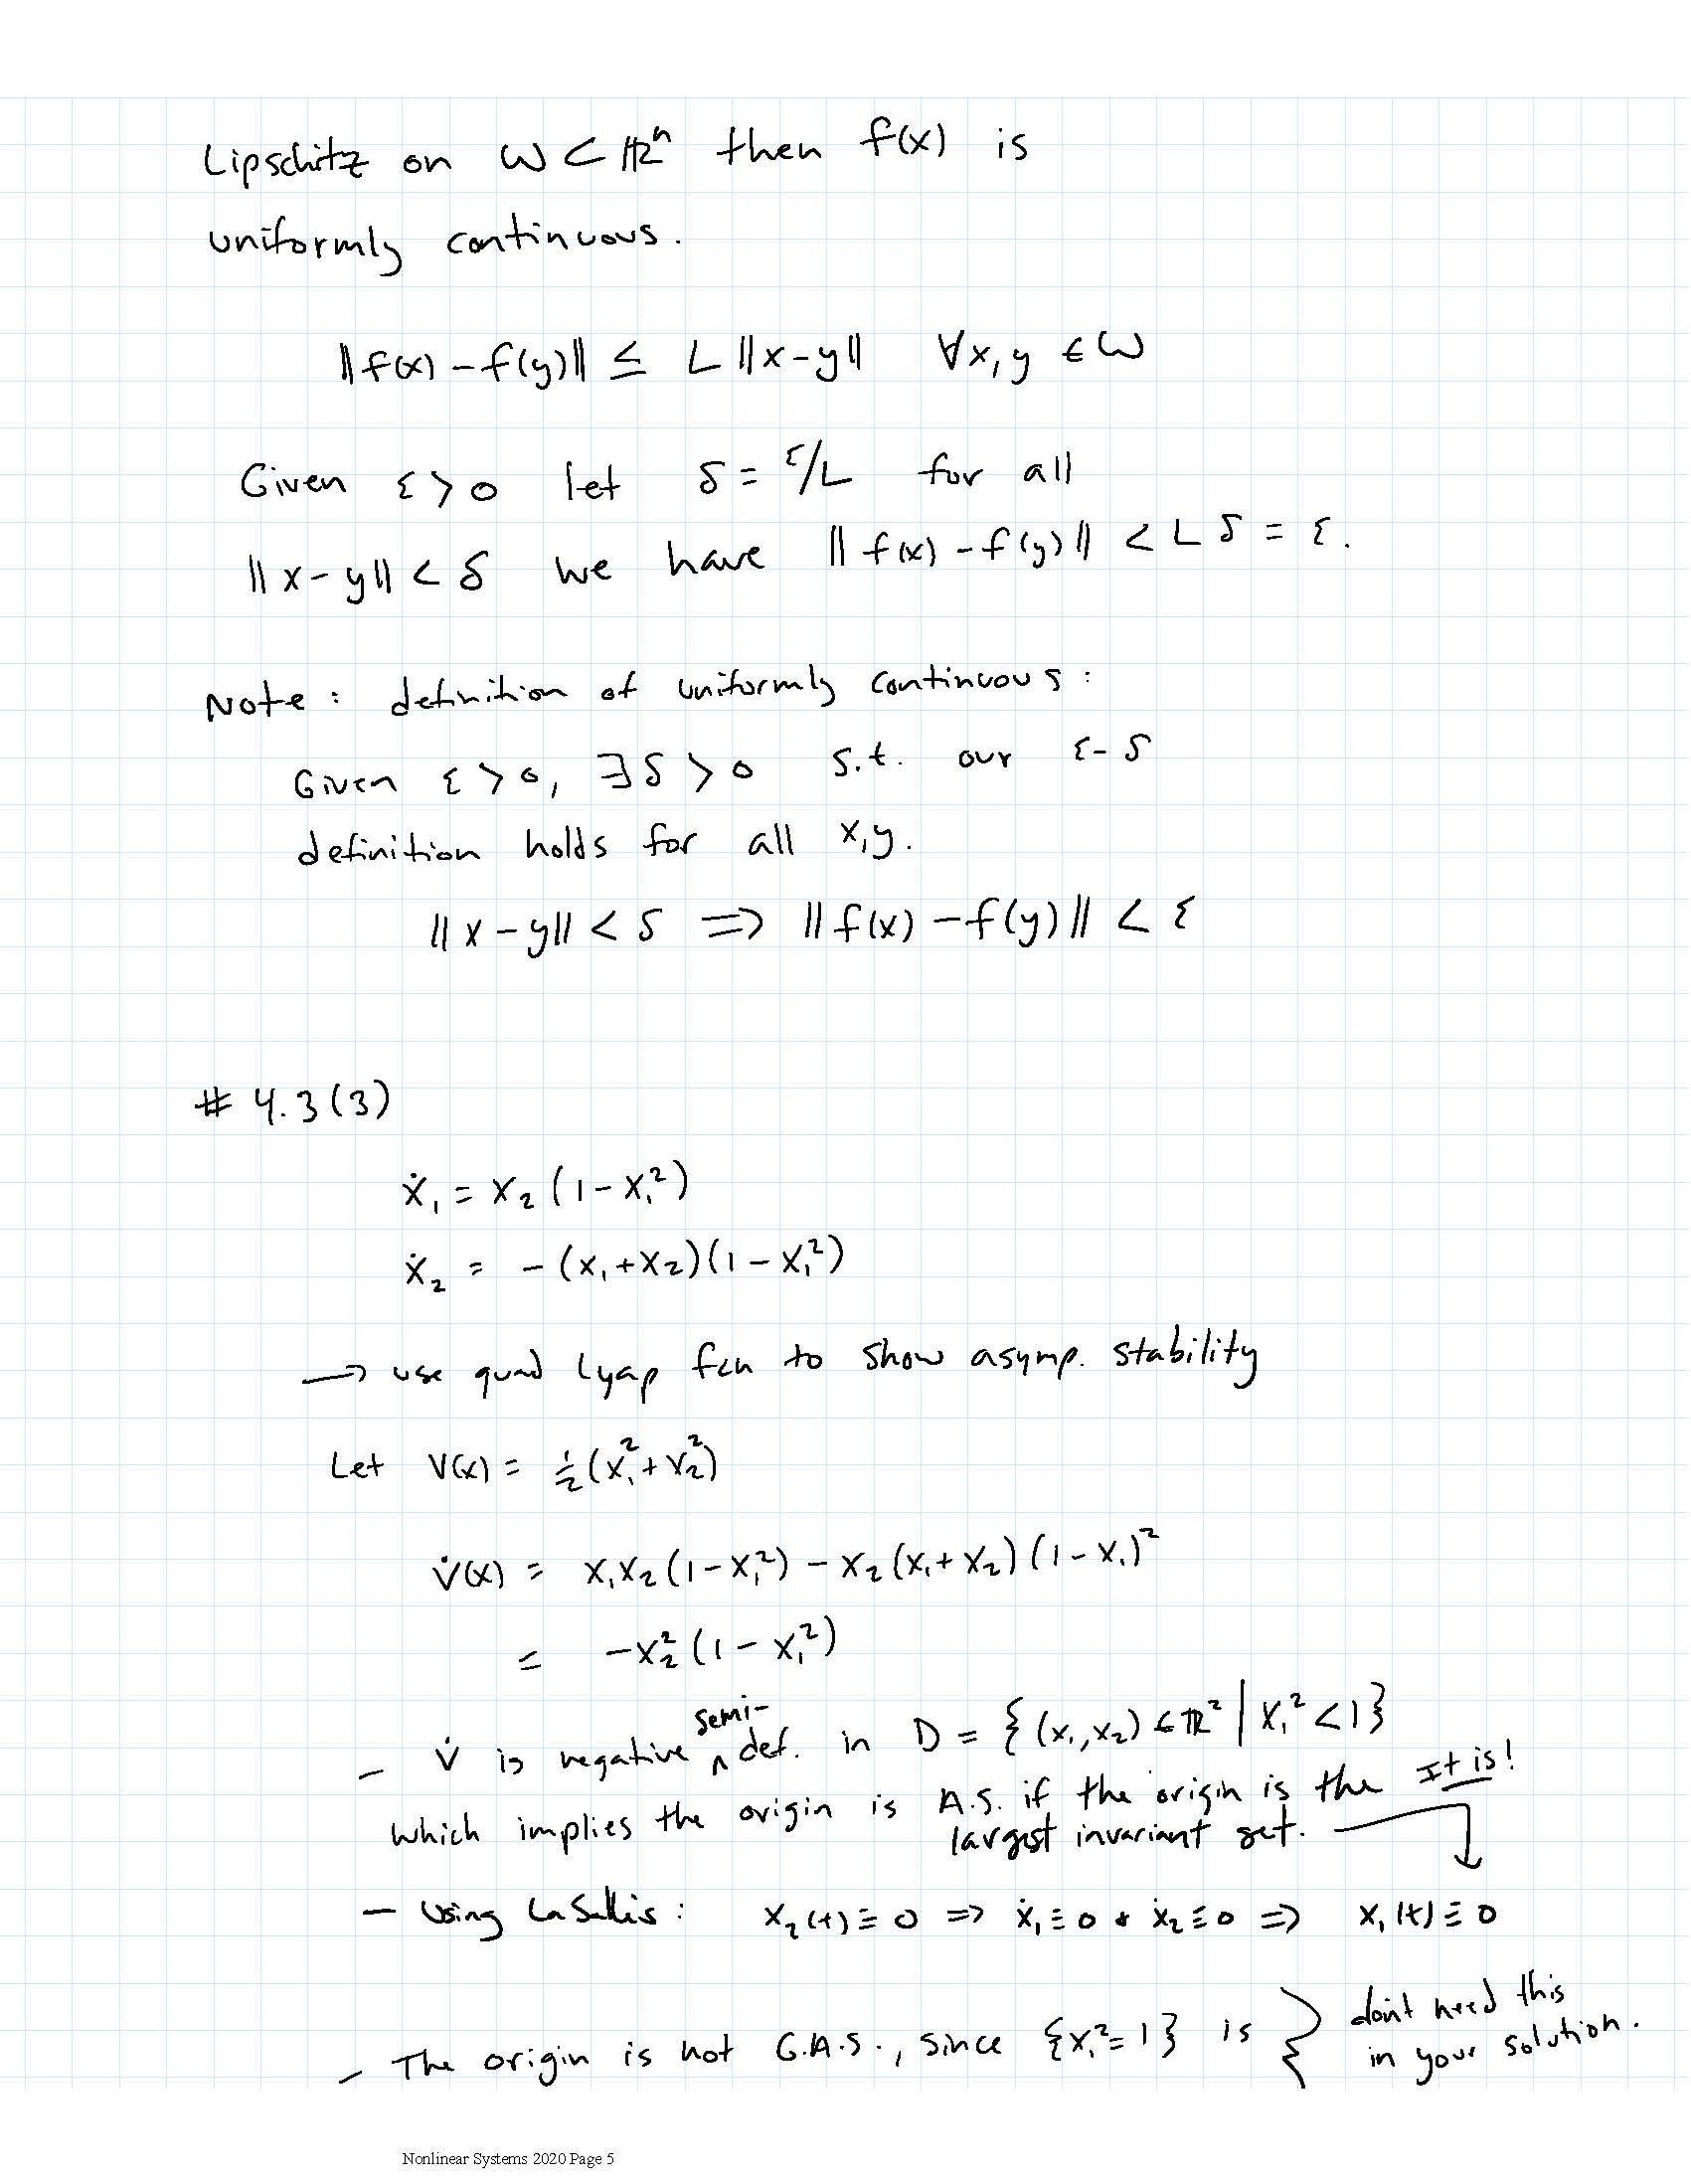 Lipschitz on W ⊂ ℝⁿ then f(x) is
uniformly continuous.
‖f(x) - f(y)‖ ≤ L ‖x-y‖ ∀x,y ∈ W
Given ε > 0 let δ = ε/L for all
‖x-y‖ < δ we have ‖f(x) - f(y)‖ < L δ = ε.
Note: definition of uniformly continuous:
Given ε > 0, ∃δ > 0 s.t. our ε-δ
definition holds for all x,y.
‖x-y‖ < δ ⇒ ‖f(x) - f(y)‖ < ε
# 4.3(3)
ẋ₁ = x₂(1-x₁²)
ẋ₂ = -(x₁+x₂)(1-x₁²)
→ use quad lyap fcn to show asymp. stability
Let V(x) = ½(x₁²+x₂²)
V̇(x) = x₁x₂(1-x₁²) - x₂(x₁+x₂)(1-x₁)²
= -x₂²(1-x₁²)
- V̇ is negative semi-def. in D = {(x₁,x₂) ∈ ℝ² | x₁² < 1}
which implies the origin is A.S. if the origin is the It is!
largest invariant set.
- Using LaSalle's: x₂(t) ≡ 0 ⇒ ẋ₁ ≡ 0 + ẋ₂ ≡ 0 ⇒ x₁(t) ≡ 0
- The origin is not G.A.S., since {x₁²=1} is } don't need this
in your solution.
Nonlinear Systems 2020 Page 5